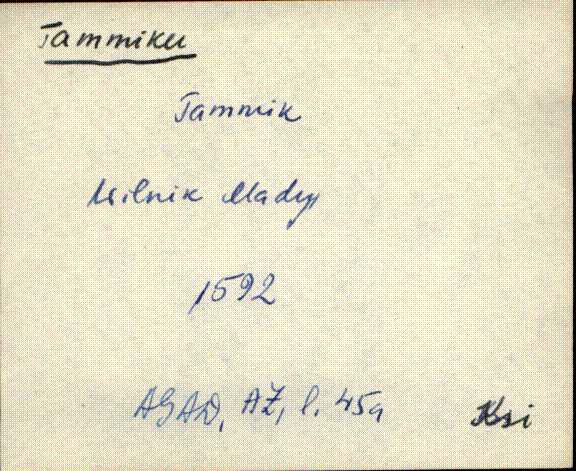 Tammiku
Tammik
Wilnik Madys
1592
AGAD, AŻ, l. 45a
Ksi